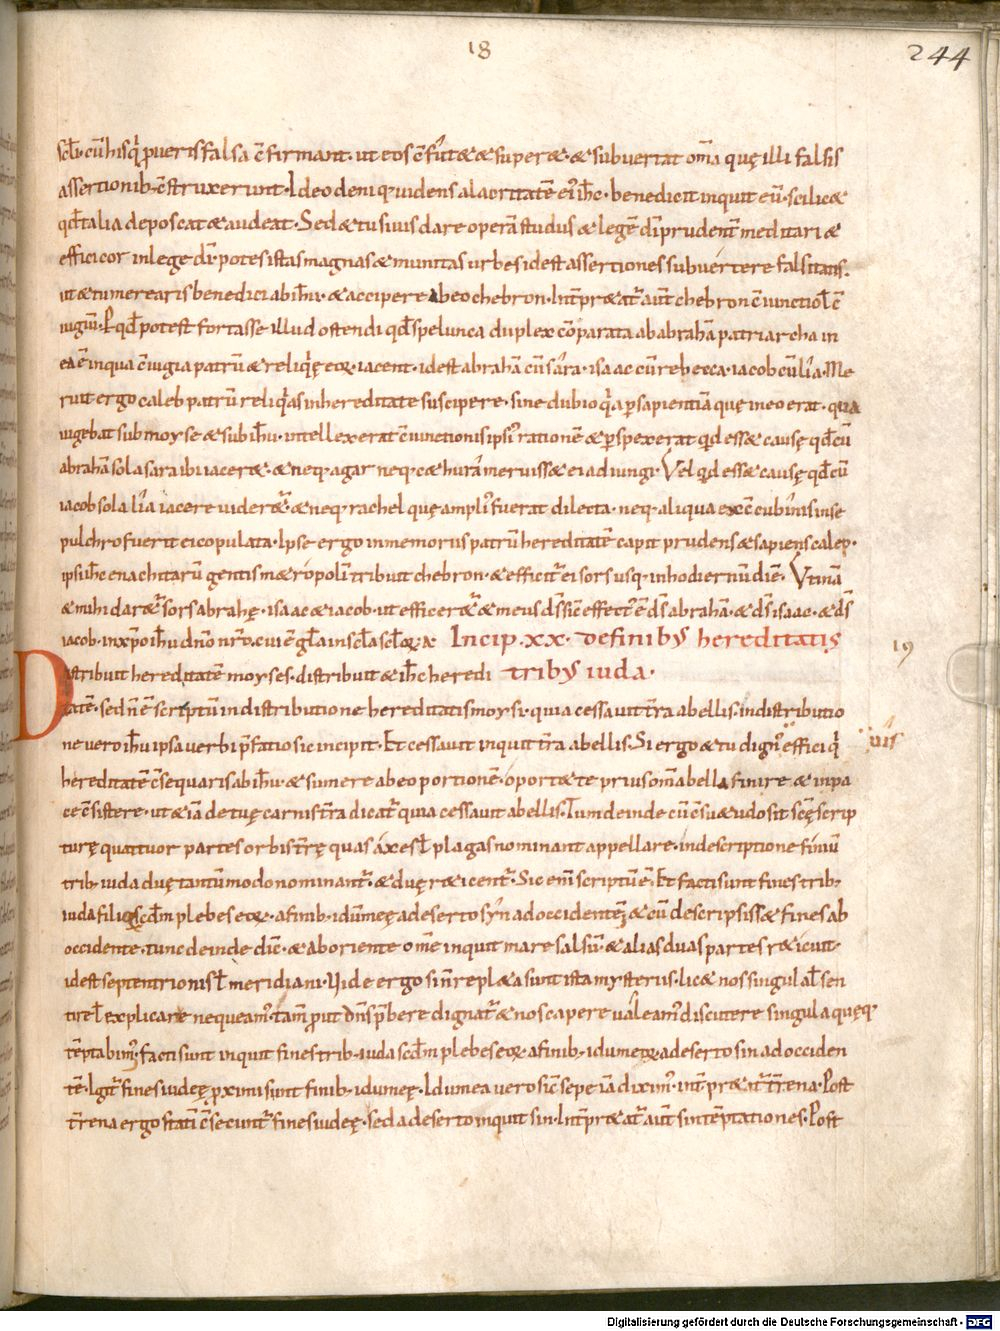 18
244
scłi. cū hisq̇ pueris falsa c̄firmant. ut eos c̄fut& & super&. & subuertat om̄a quę illi falsis
assertionib; c̄struxerunt. Ideo deniq; uidens alacritatē ei' ih̄c. benedicit inquit eū. scilic&
qd̄ talia deposcat & audeat. Sed & tu si uis dare operā studiis & legē dī prudent̄ meditari &
effici cor in lege dī. potes istas magnas & munitas urbes id est assertiones subuertere falsitatis.
ut & tu merearis benedici ab ih̄u. & accipere ab eo chebron. Int̄pr&at̄ aūt chebron c̄iunctio ł c̄
iugiū. P qd̄ potest fortasse illud ostendi qd̄ spelunca duplex cōparata ab abrahā patriarcha in
ea ē in qua c̄iugia patrū & reliq̇ę eoꝝ iacent. id est abrahā cū sara. isaac cū rebecca. iacob cū lia. Me
ruit ergo caleb patrū reliq̇as in hereditate suscipere. sine dubio q̇a p sapientiā quę in eo erat. qua
uigebat sub moyse & sub ih̄u. intellexerat c̄iunctionis ipsi' rationē & pspexerat qd ess& causę qd̄ cū
abrahā sola sara ibi iacer& & neq; agar neq; c&hurā meruiss& ei adiungi. Vel qd ess& causę qd̄ cū
iacob sola lia iacere uider&̄. & neq; rachel quę ampli' fuerat dilecta. neq; aliqua ex c̄cubinis in se
pulchro fuerit ei copulata. Ipse ergo in memoriis patrū hereditatē capit prudens & sapiens calep.
ipsi ih̄c enachitarū gentis m&ropolī tribuit chebron. & efficit̄ ei sors usq; in hodiernū diē. Vtinā
& mihi dar&̄ sors abrahę. isaac & iacob. ut efficer&̄ & meus ds̄ sic effect' ē ds̄ abrahā. & ds̄ isaac. & ds̄
iacob. in xp̄o ih̄u dn̄o nr̄o. cui ē gl̄a in scl̄a scl̄oꝝ a Incip. xx. de finib; hereditatis
19
Distribuit hereditatē moyses. distribuit & ih̄c heredi tribus iuda.
tatē. sed n̄ ē scriptū in distributione hereditatis moysi. quia cessauit t̄ra a bellis. in distributio
ne uero ih̄u ipsa uerbi p̄fatio sic incipit. Et cessauit inquit t̄ra a bellis. Si ergo & tu dign' effici q̇
uis
hereditatē c̄sequaris ab ih̄u & sumere ab eo portionē. oport& te prius om̄a bella finire & in pa
ce c̄sistere. ut & iā de tuę carnis t̄ra dicat̄ quia cessauit a bellis. Tum deinde cū c̄su&udo sit scę scrip
turę quattuor partes orbis t̄rę quas áxes ł plagas nominant appellare. in descriptione finiū
trib; iuda duę tantūmodo nominant̄. & duę r&icent̄. Sic enī scriptū ē. Et facti sunt fines trib;
iuda filioꝝ scd̄m plebes eoꝝ. a finib; idumęę a deserto syn ad occidentē. & cū descripsiss& fines ab
occidente. tunc deinde dic̄. & ab oriente om̄e inquit mare salsū. & alias duas partes r&icuit.
id est septentrionis ł meridiani. Vide ergo si n̄ repl&a sunt ista mysteriis. lic& nos singula ł sen
tire ł explicare nequeam'. tam̄ prout dn̄s p̄bere dignat̄ & nos capere ualeam' discutere singula quęq;
tēptabim'. facti sunt inquit fines trib; iuda scd̄m plebes eoꝝ. a finib; idumęę. a deserto sin ad occiden
tē. Igit̄ fines iudęę pximi sunt finib; idumęę. Idumea uero sic̄ sepe iā dixim'. int̄pr&at̄ t̄rena. Post
t̄rena ergo statī c̄secunt̄ fines iudęę. sed a deserto inquit sin. Int̄pr&at̄ aūt sin tēptationes. Post
Digitalisierung gefördert durch die Deutsche Forschungsgemeinschaft - DFG